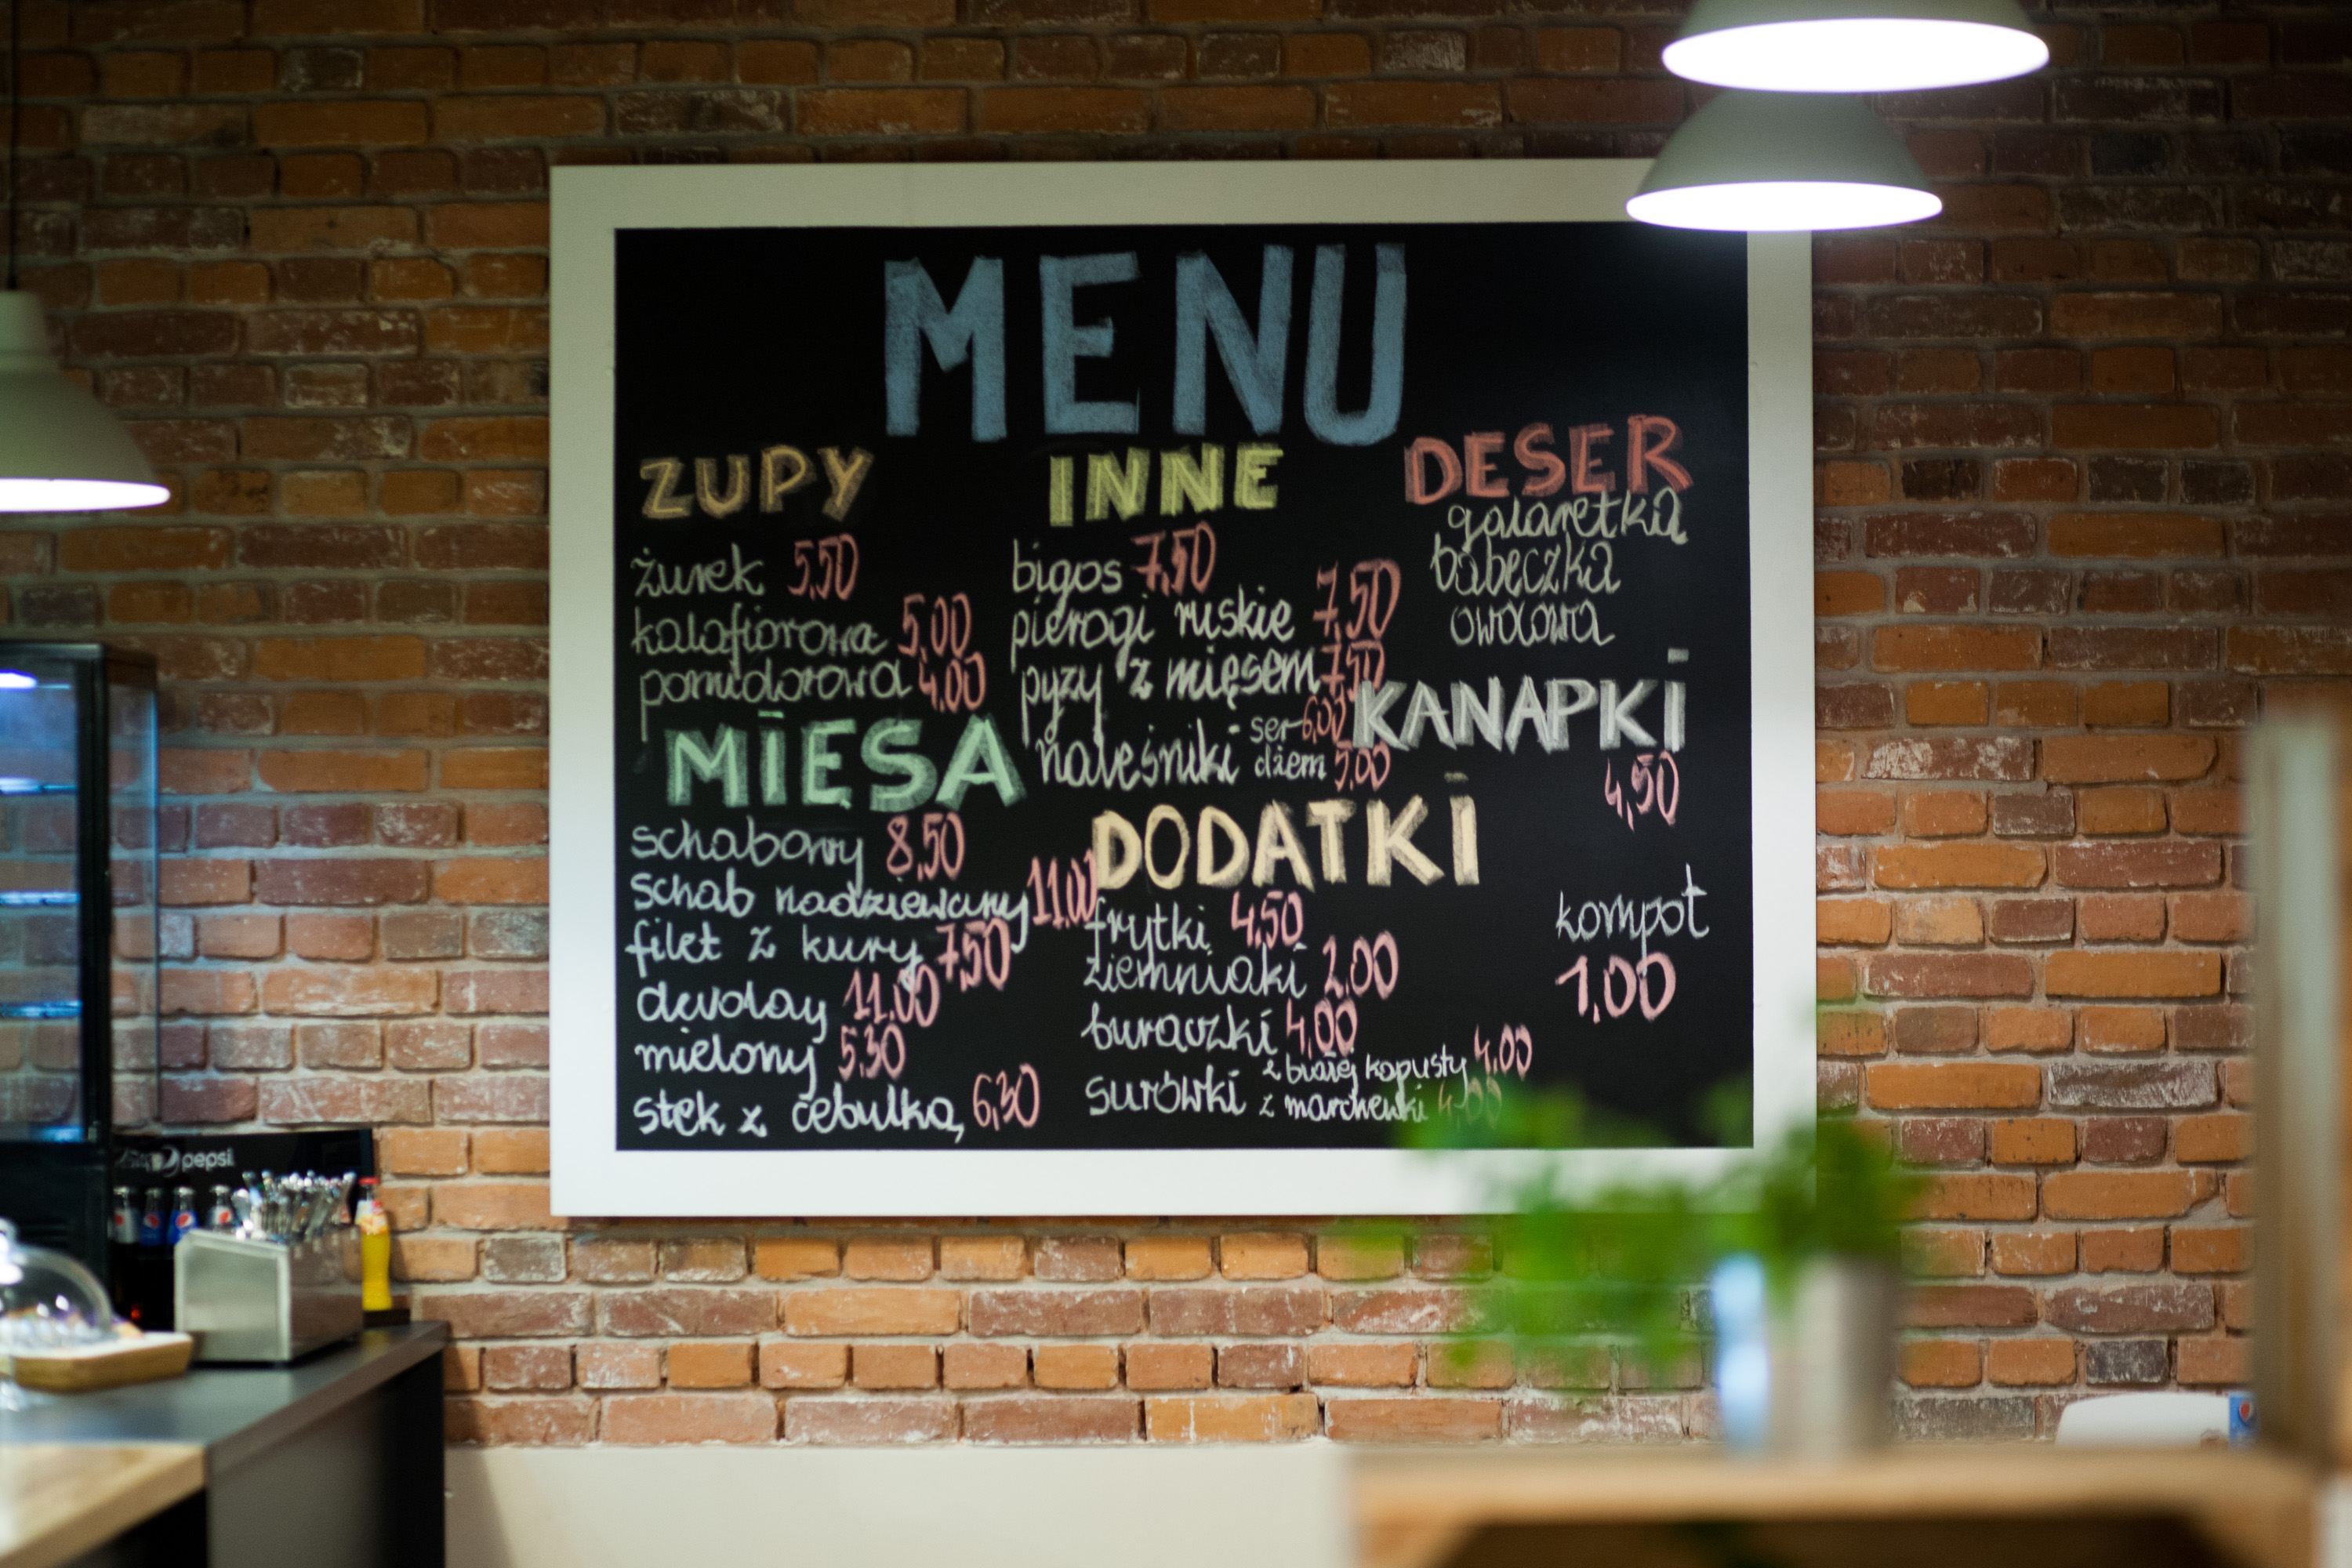 MENU
ZUPY
żurek 5,50
kalafiorowa 5,00
pomidorowa 4,00
MIĘSA
schabowy 8,50
schab nadziewany 11,00
filet z kury 7,50
devolay 11,00
mielony 5,30
stek z cebulką 6,30
INNE
bigos 7,50
pierogi ruskie 7,50
pyzy z mięsem 7,50
naleśniki ser 6,00
dżem 5,00
DODATKI
frytki 4,50
ziemniaki 2,00
buraczki 4,00
surówki z białej kapusty 4,00
z marchewki 4,00
DESER
galaretka
babeczka
owocowa
KANAPKI
4,50
kompot
1,00
pepsi